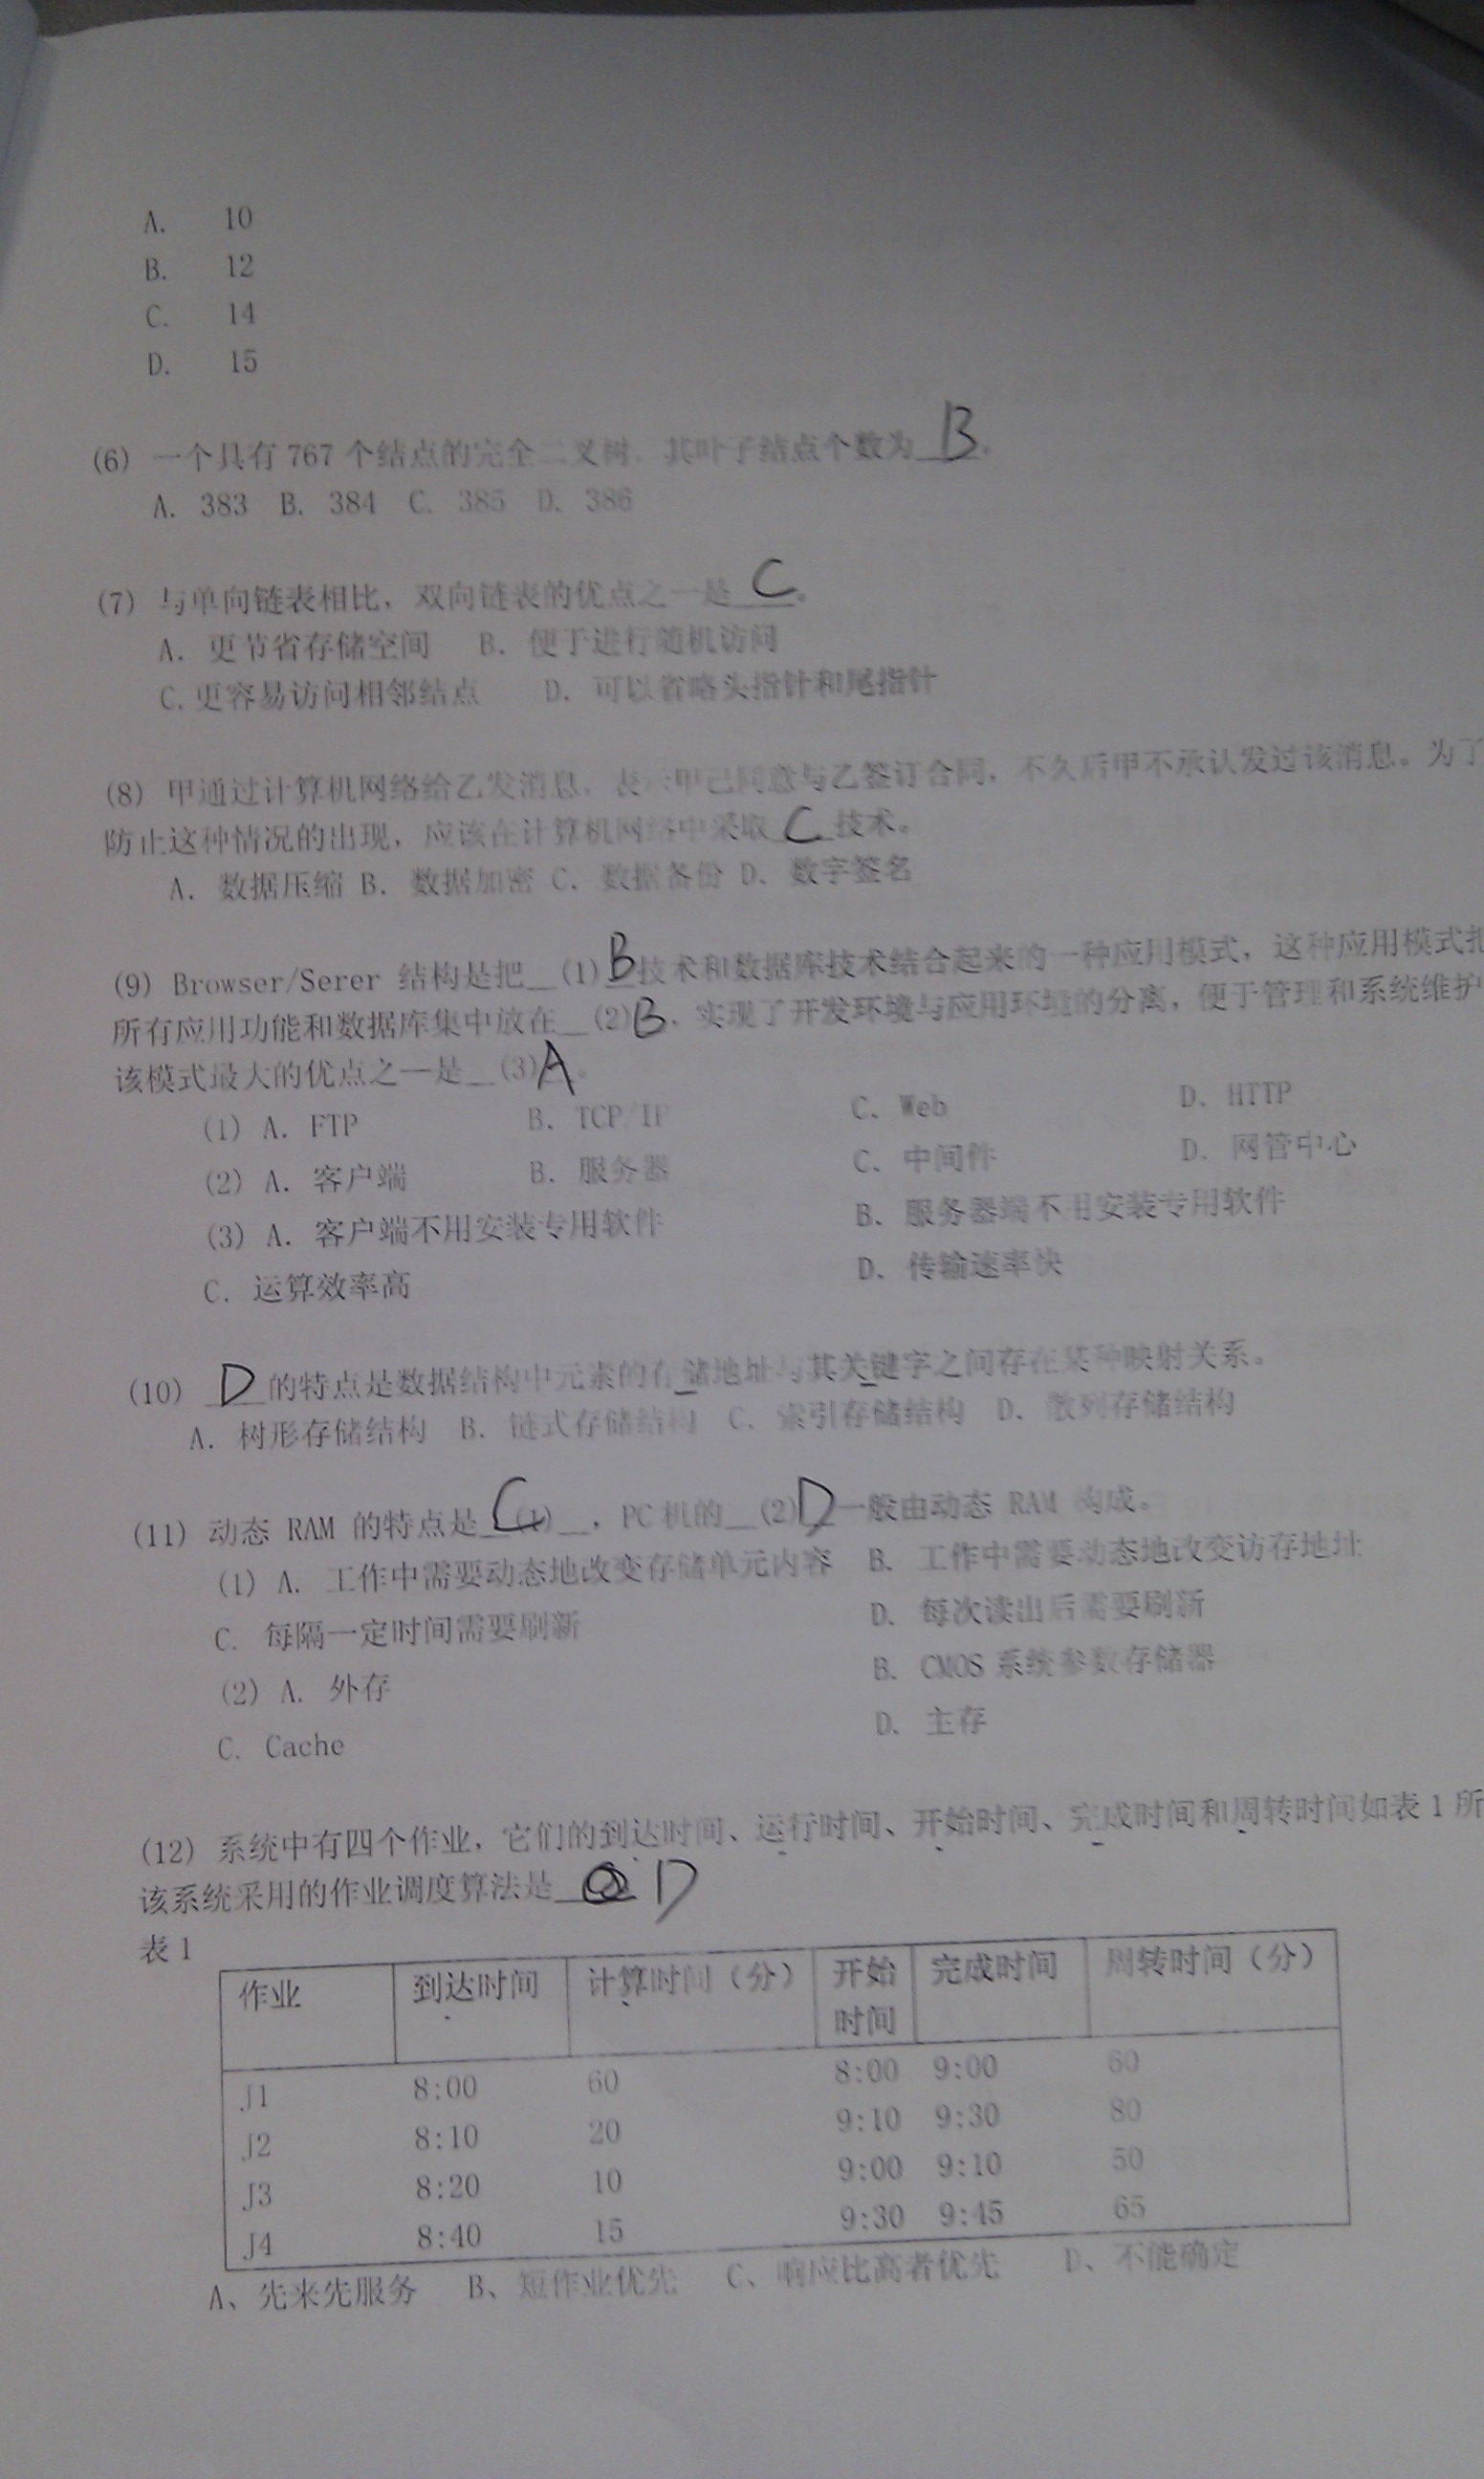 A. 10
B. 12
C. 14
D. 15
(6) 一个具有 767 个结点的完全二叉树，其叶子结点个数为 B 。
A. 383 B. 384 C. 385 D. 386
(7) 与单向链表相比，双向链表的优点之一是 C 。
A. 更节省存储空间 B. 便于进行随机访问
C.更容易访问相邻结点 D. 可以省略头指针和尾指针
(8) 甲通过计算机网络给乙发消息，表示甲已同意与乙签订合同，不久后甲不承认发过该消息。为了
防止这种情况的出现，应该在计算机网络中采取 C 技术。
A. 数据压缩 B. 数据加密 C. 数据备份 D. 数字签名
(9) Browser/Serer 结构是把__(1) B 技术和数据库技术结合起来的一种应用模式，这种应用模式把
所有应用功能和数据库集中放在__(2) B ，实现了开发环境与应用环境的分离，便于管理和系统维护
该模式最大的优点之一是__(3) A 。
(1) A. FTP B. TCP/IP C. Web D. HTTP
(2) A. 客户端 B. 服务器 C. 中间件 D. 网管中心
(3) A. 客户端不用安装专用软件 B. 服务器端不用安装专用软件
C. 运算效率高 D. 传输速率快
(10) D 的特点是数据结构中元素的存储地址与其关键字之间存在某种映射关系。
A. 树形存储结构 B. 链式存储结构 C. 索引存储结构 D. 散列存储结构
(11) 动态 RAM 的特点是__(1)__ C ，PC 机的__(2) D 一般由动态 RAM 构成。
(1) A. 工作中需要动态地改变存储单元内容 B. 工作中需要动态地改变访存地址
C. 每隔一定时间需要刷新 D. 每次读出后需要刷新
(2) A. 外存 B. CMOS 系统参数存储器
C. Cache D. 主存
(12) 系统中有四个作业，它们的到达时间、运行时间、开始时间、完成时间和周转时间如表 1 所
该系统采用的作业调度算法是 D
表 1
作业 到达时间 计算时间（分） 开始时间 完成时间 周转时间（分）
J1 8:00 60 8:00 9:00 60
J2 8:10 20 9:10 9:30 80
J3 8:20 10 9:00 9:10 50
J4 8:40 15 9:30 9:45 65
A、先来先服务 B、短作业优先 C、响应比高者优先 D、不能确定